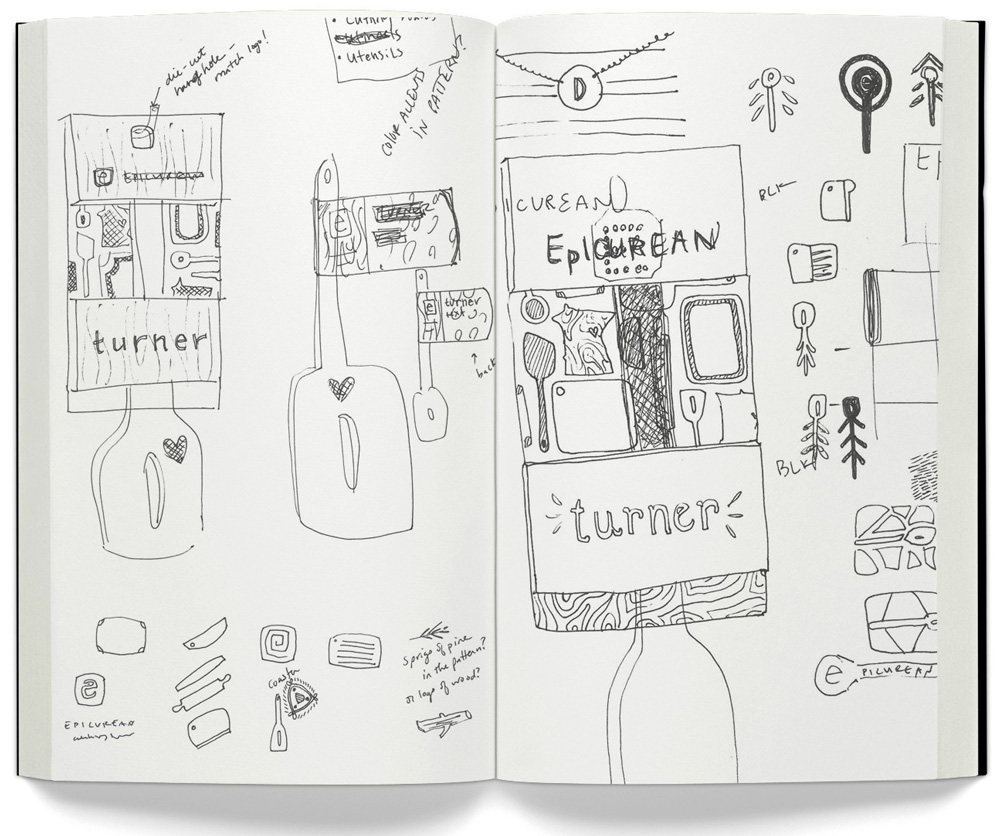 die-cut
hang hole -
match logo!
• Utensils
COLOR ACCENTS
IN PATTERN?
e
turner
e
e
turner
text
back
Sprigs of pine
in the pattern?
or logs of wood?
coaster
e
EPICUREAN
D
ICUREAN
EpicUREAN
turner
BLK
BLK
e
PICUREAN